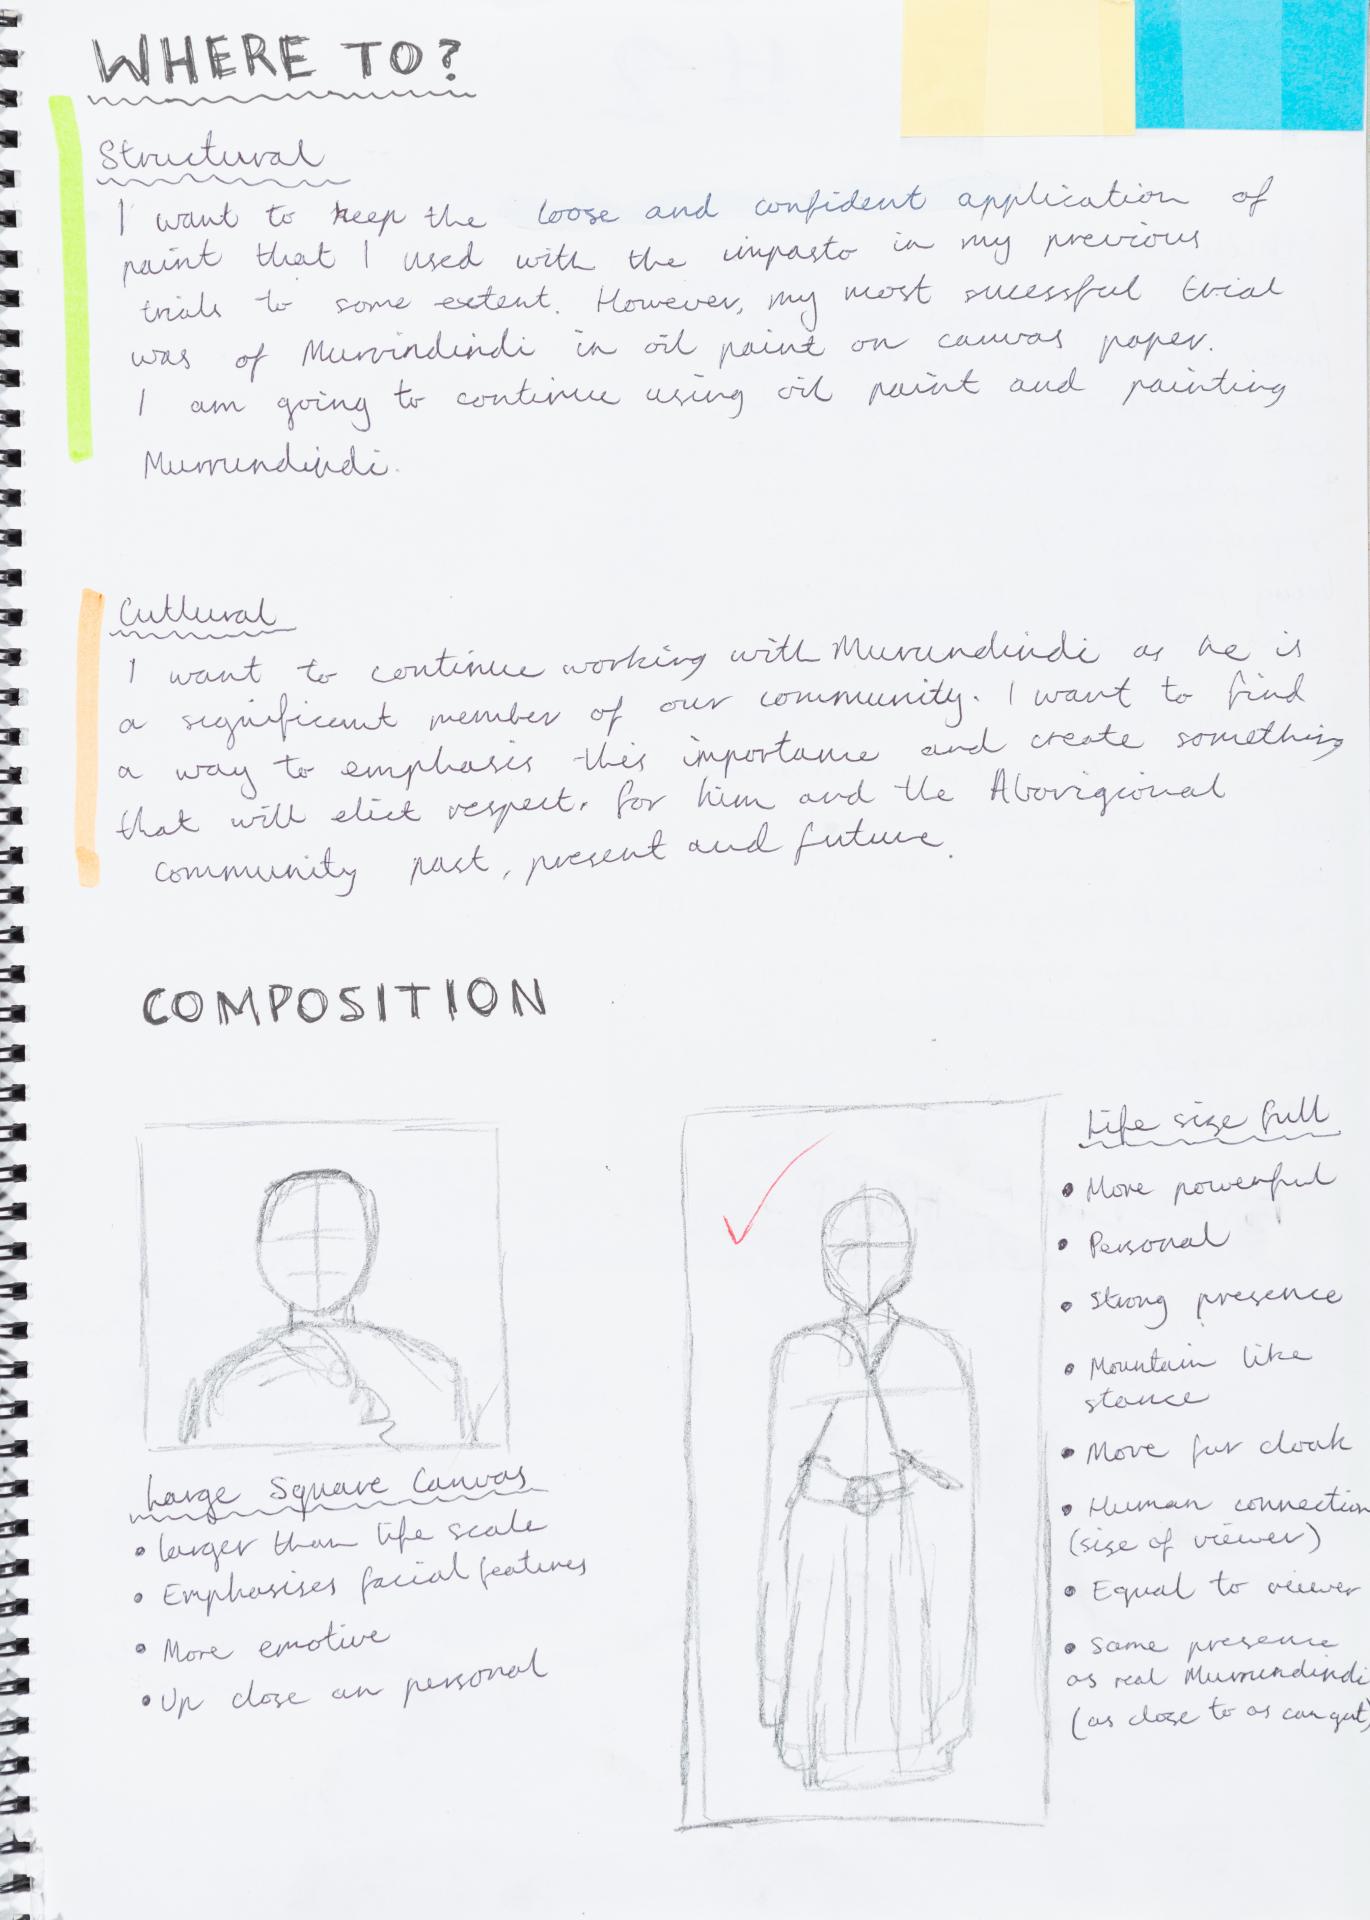 WHERE TO?
Structural
I want to keep the loose and confident application of
paint that I used with the impasto in my previous
trials to some extent. However, my most sucessful trial
was of Murrindindi in oil paint on canvas paper.
I am going to continue using oil paint and painting
Murrundindi.
Cultural
I want to continue working with Murrundindi as he is
a significant member of our community. I want to find
a way to emphasis this importance and create something
that will elict respect. for him and the Aborigional
community past, present and future.
COMPOSITION
Large Square Canvas
• larger than life scale
• Emphasises facial features
• More emotive
• Up close an personal
Life size full
• More powerful
• Personal
• Strong presence
• Mountain like
stance
• More fur cloak
• Human connection
(size of viewer)
• Equal to viewer
• Same presence
as real Murrundindi
(as close to as can get)